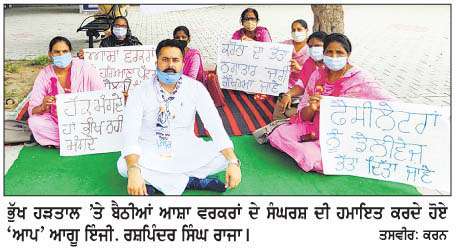 ਆਸ਼ਾ ਵਰਕਰਾਂ
ਹੱਕ ਮੰਗਦੇ
ਹਾਂ ਭੀਖ ਨਹੀਂ
ਮੰਗਦੇ
ਕਰੋਨਾ ਦਾ ਤੇ
ਲਗਾਤਾਰ
ਫੈਸੀਲੇਟਰਾਂ
ਨੂੰ ਟੈਲੀਵੇਜ਼
ਭੱਤਾ ਦਿੱਤਾ ਜਾਵੇ
ਭੁੱਖ ਹੜਤਾਲ ’ਤੇ ਬੈਠੀਆਂ ਆਸ਼ਾ ਵਰਕਰਾਂ ਦੇ ਸੰਘਰਸ਼ ਦੀ ਹਮਾਇਤ ਕਰਦੇ ਹੋਏ
‘ਆਪ’ ਆਗੂ ਇੰਜੀ. ਰਸ਼ਪਿੰਦਰ ਸਿੰਘ ਰਾਜਾ। ਤਸਵੀਰ: ਕਰਨ